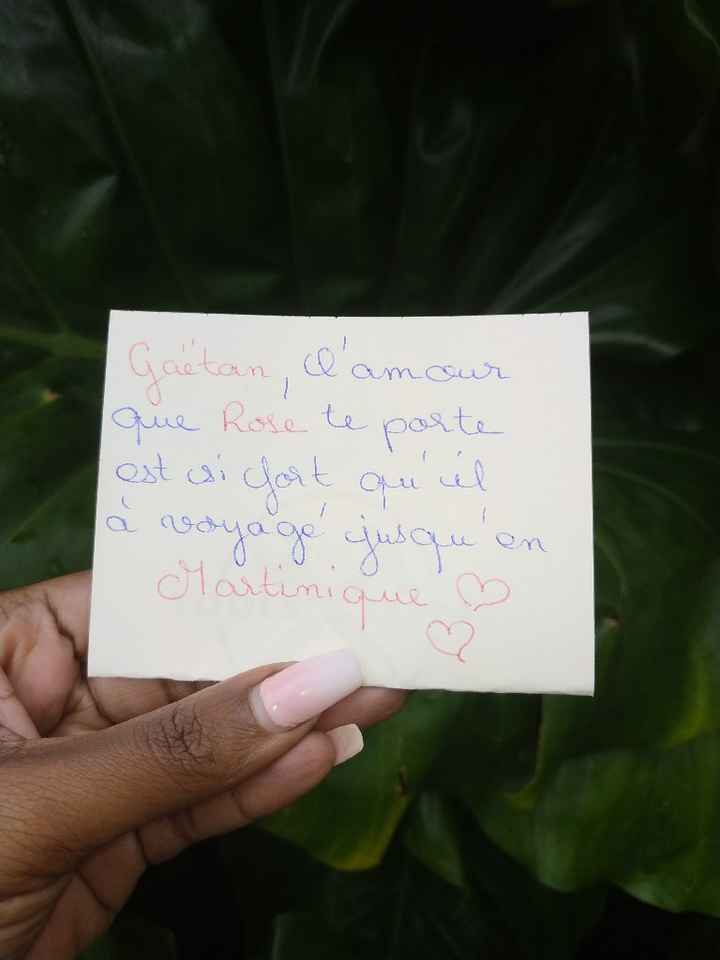 Gaëtan, l'amour
que Rose te porte
est si fort qu'il
à voyagé jusqu'en
Martinique ♡
♡